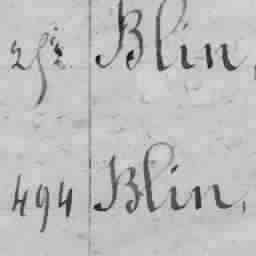 252 Blin,
494 Blin,